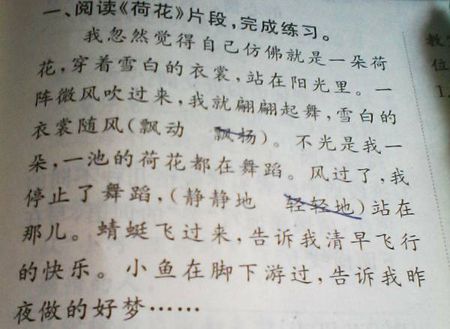 一、阅读《荷花》片段,完成练习。
我忽然觉得自己仿佛就是一朵荷
花,穿着雪白的衣裳,站在阳光里。一
阵微风吹过来,我就翩翩起舞,雪白的
衣裳随风(飘动 飘扬)。不光是我一
朵,一池的荷花都在舞蹈。风过了,我
停止了舞蹈,(静静地 轻轻地)站在
那儿。蜻蜓飞过来,告诉我清早飞行
的快乐。小鱼在脚下游过,告诉我昨
夜做的好梦……
位
1.